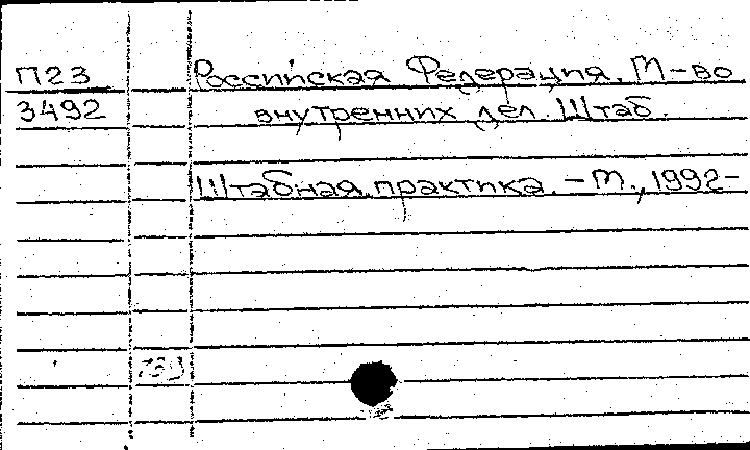 П23 Российская Федерация. М-во
3492 внутренних дел. Штаб.
Штабная практика. – М., 1992–